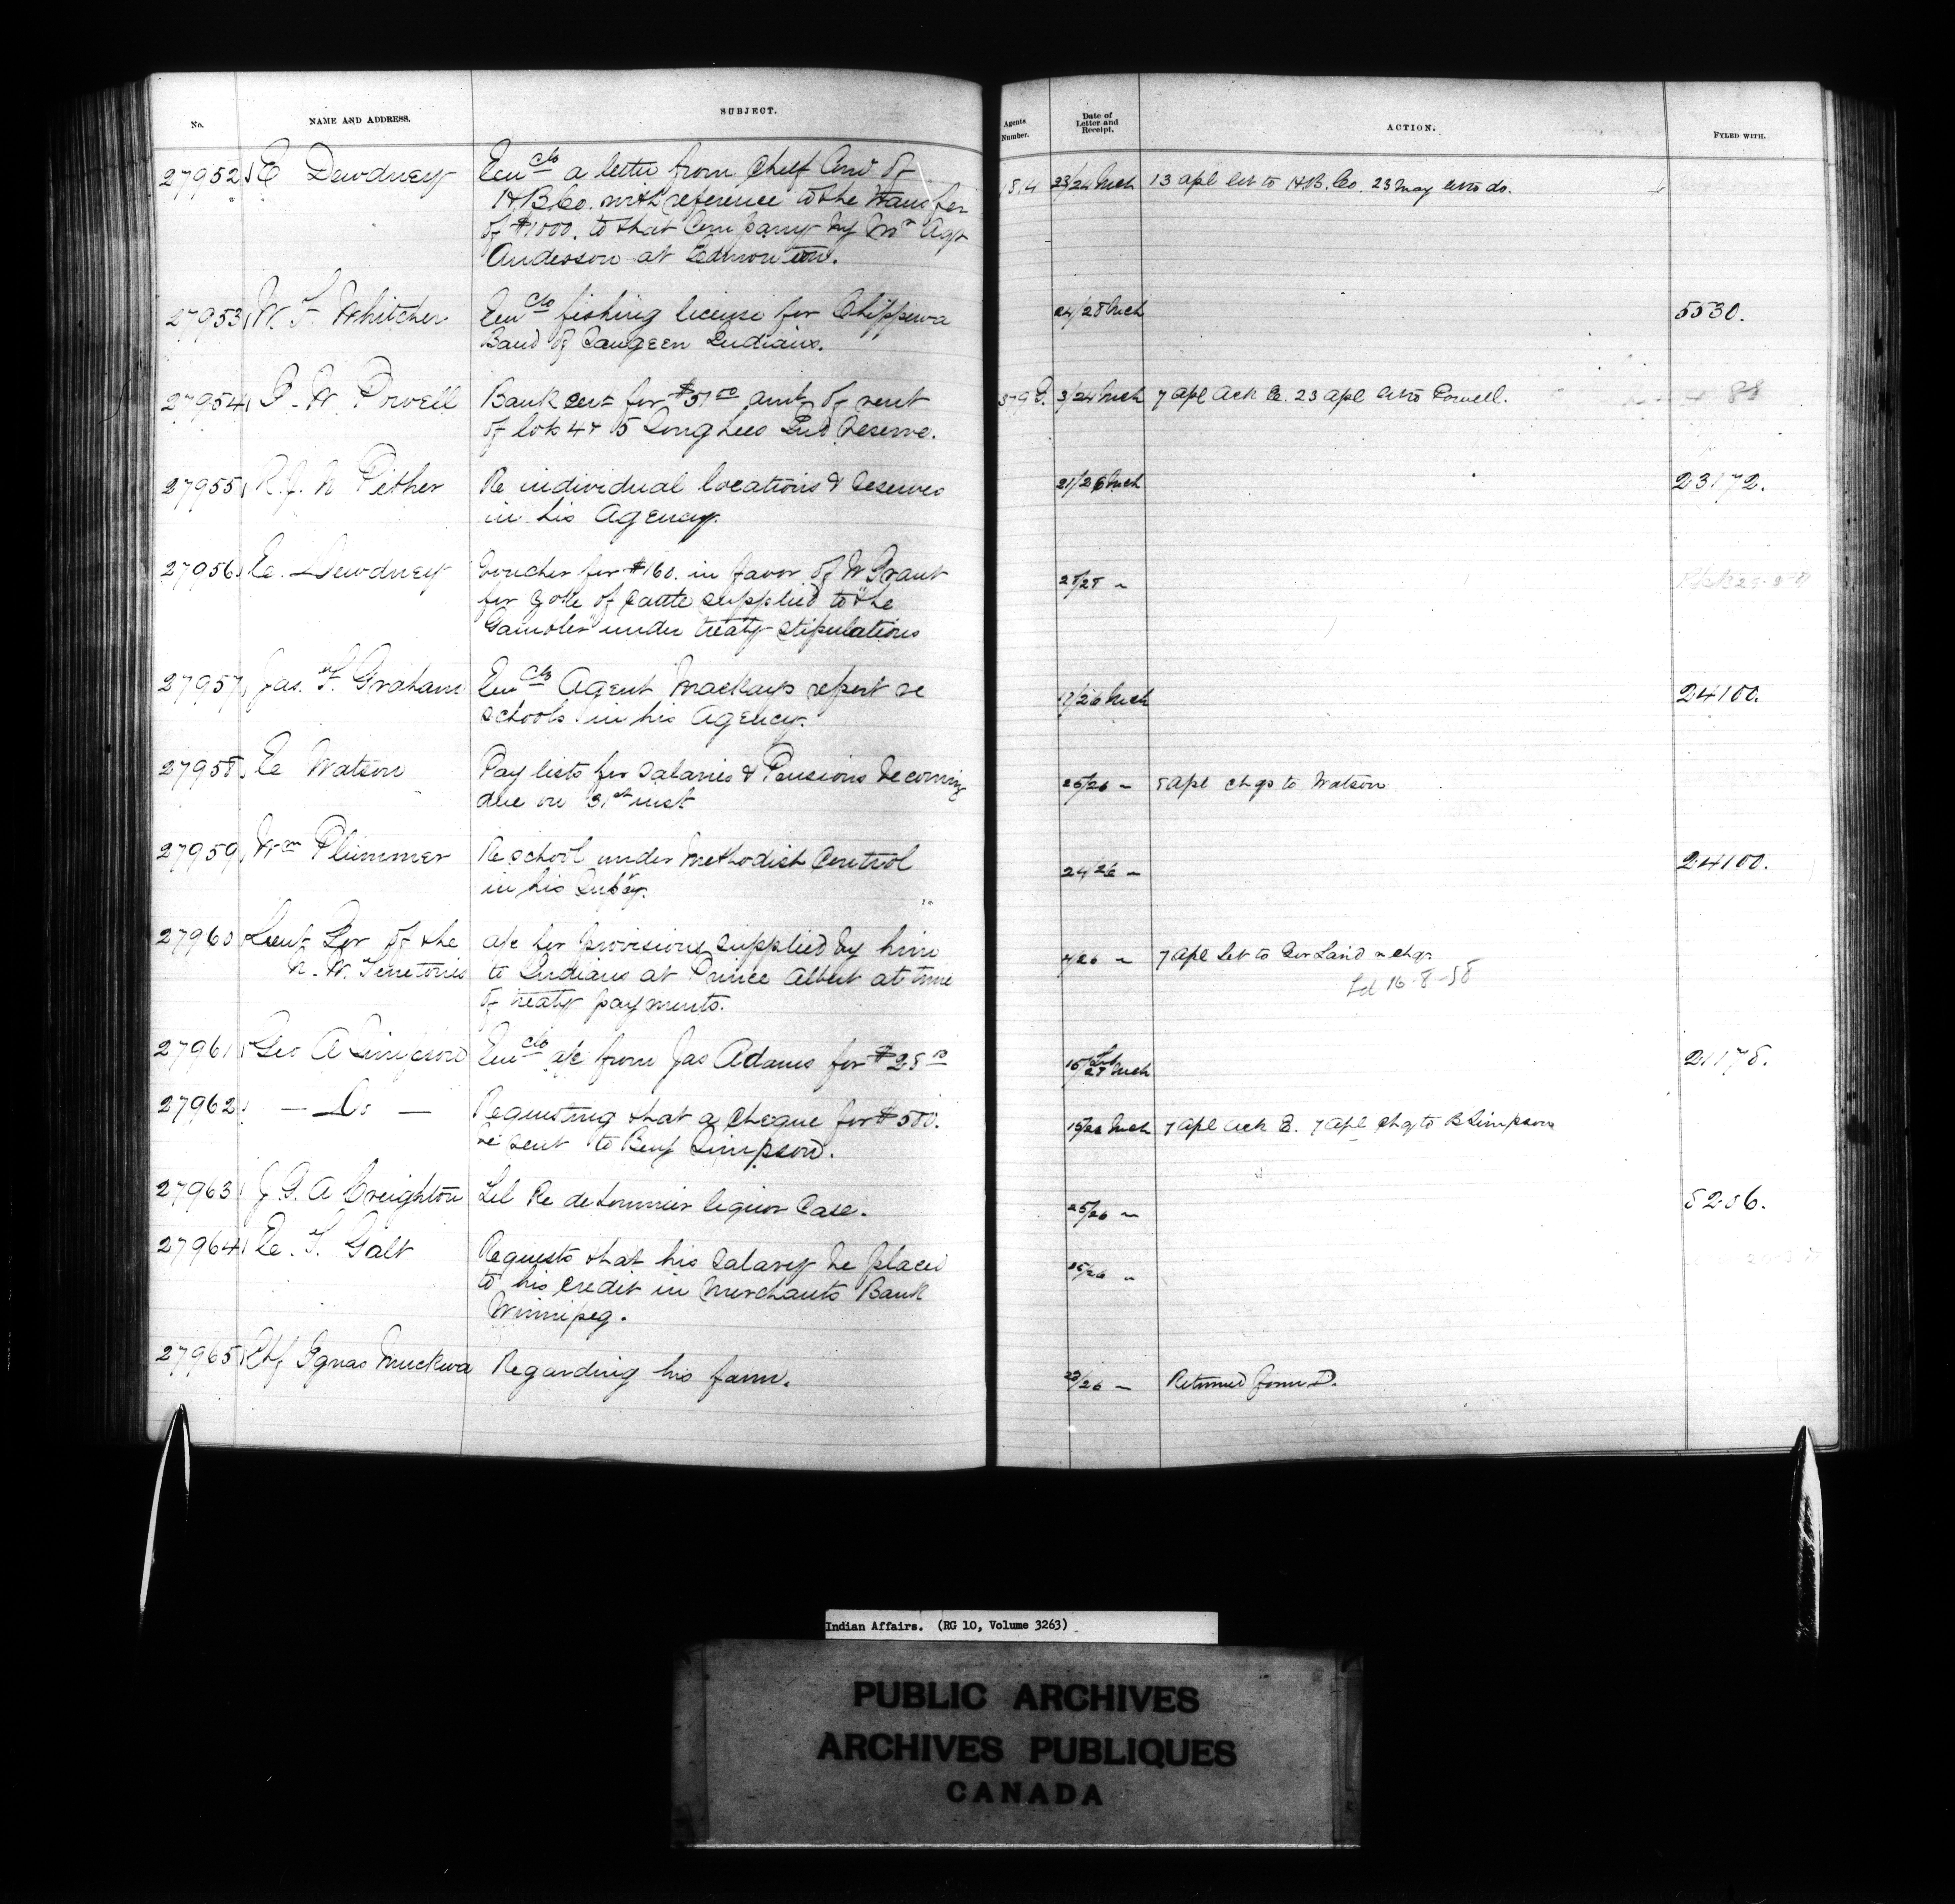 No.
NAME AND ADDRESS.
SUBJECT.
Agents Number.
Date of Letter and Receipt.
ACTION.
FYLED WITH.
27952 E Dewdney
Encls a letter from Chief Com of
H.B.Co. with reference to the transfer
of $1000. to that Company by Mr Agt
Anderson at Edmonton.
1814 23/24 Mch 13 Apl let to H.B. Co. 23 May let to do.
27953 W. F. Whitcher
Encls fishing license for Chippewa
Band of Saugeen Indians.
24/28 Mch
5530.
27954 I. W. Powell
Bank cert for $51 00 amt of rent
of lots 4 & 5 Songhees Ind Reserve.
379 E. 3/24 Mch 7 Apl Ack E. 23 Apl let to Powell.
27955 R. J. N Pither
Re individual locations & reserves
in his Agency.
21/26 Mch
23172.
27956 E. Dewdney
Voucher for $160. in favor of W Grant
for yoke of cattle supplied to "the
Gambler" under treaty stipulations
28/28 "
27957 Jas. F. Graham
Encls Agent Mackays report re
schools in his Agency.
17/26 Mch
24100.
27958 E Watson
Pay lists for Salaries & Pensions becoming
due on 31st inst
25/26 " 5 Apl chqs to Watson
27959 Wm Plummer
Re school under Methodist Control
in his Supcy.
24/26 "
24100.
27960 Lieut Gov of the
N. W. Territories
a/c for provisions supplied by him
to Indians at Prince Albert at time
of treaty payments.
4/26 " 7 Apl Let to Gov Laird & chq.
27961 Geo A Simpson
Encls a/c from Jas Adams for $28
15 Feb/28 Mch
21178.
27962 — Do —
Requesting that a cheque for $500.
be sent to Benj Simpson.
7 Apl Ack E. 7 Apl Chq to B Simpson
27963 J. G. A Creighton
Let Re deLormier liquor case.
25/26 "
5256.
27964 E. T. Galt
Requests that his salary be placed
to his credit in Merchants Bank
Winnipeg.
25/26 "
27965 Chf Ignas Muckwa
Regarding his farm.
23/26 " Returned form D.
Indian Affairs. (RG 10, Volume 3263)
PUBLIC ARCHIVES
ARCHIVES PUBLIQUES
CANADA